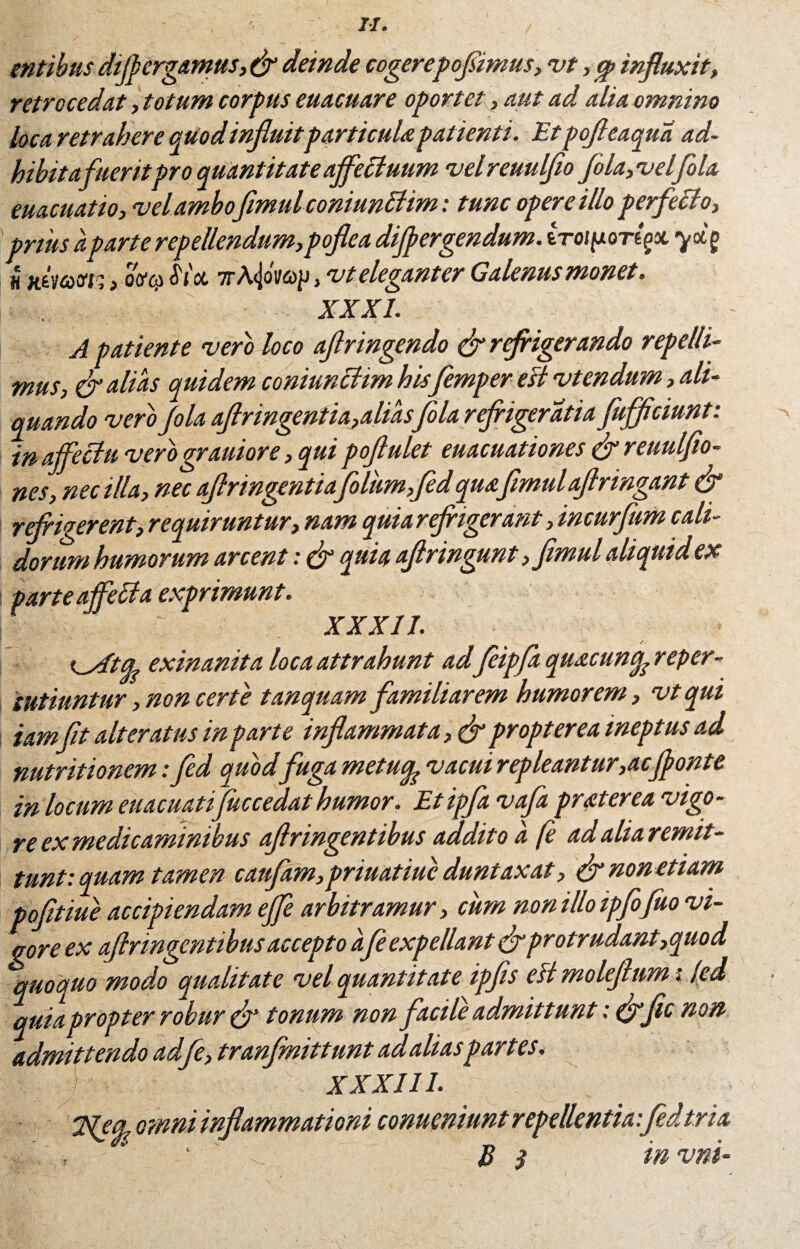 II.
entibus diſpergamus, & deinde cogere poſsimus, vt, q̃ influxit,
retrocedat, totum corpus euacuare oportet, aut ad alia omnino
loca retrahere quod influit particulæ patienti. Et poſteaquã ad-
hibita fuerit pro quantitate affectuum vel reuulſio ſola, vel ſola
euacuatio, vel ambo ſimul coniunctim: tunc opere illo perfecto,
prius à parte repellendum, poſtea diſpergendum. ἑτοιμοτέρα γὰρ
ἡ κένωσις, ὅσῳ διὰ πλειόνων, vt eleganter Galenus monet.
XXXI.
A patiente verò loco aſtringendo & refrigerando repelli-
mus, & aliàs quidem coniunctim his ſemper eſt vtendum, ali-
quando verò ſola aſtringentia, aliàs ſola refrigerãtia ſufficiunt:
in affectu verò grauiore, qui poſtulet euacuationes & reuulſio-
nes, nec illa, nec aſtringentia ſolùm, ſed quæ ſimul aſtringant &
refrigerent, requiruntur, nam quia refrigerant, incurſum cali-
dorum humorum arcent: & quia aſtringunt, ſimul aliquid ex
parte affecta exprimunt.
XXXII.
Atq; exinanita loca attrahunt ad ſeipſa quæcunq; reper-
cutiuntur, non certè tanquam familiarem humorem, vt qui
iam ſit alteratus in parte inflammata, & propterea ineptus ad
nutritionem: ſed quòd fuga metuq; vacui repleantur, ac ſponte
in locum euacuati ſuccedat humor. Et ipſa vaſa præterea vigo-
re ex medicaminibus aſtringentibus addito à ſe ad alia remit-
tunt: quam tamen cauſam, priuatiuè duntaxat, & non etiam
poſitiuè accipiendam eſſe arbitramur, cùm non illo ipſo ſuo vi-
gore ex aſtringentibus accepto à ſe expellant & protrudant, quod
quoquo modo qualitate vel quantitate ipſis eſt moleſtum: ſed
quia propter robur & tonum non facilè admittunt: & ſic non
admittendo ad ſe, tranſmittunt ad alias partes.
XXXIII.
Neq; omni inflammationi conueniunt repellentia: ſed tria
B 3 in vni-